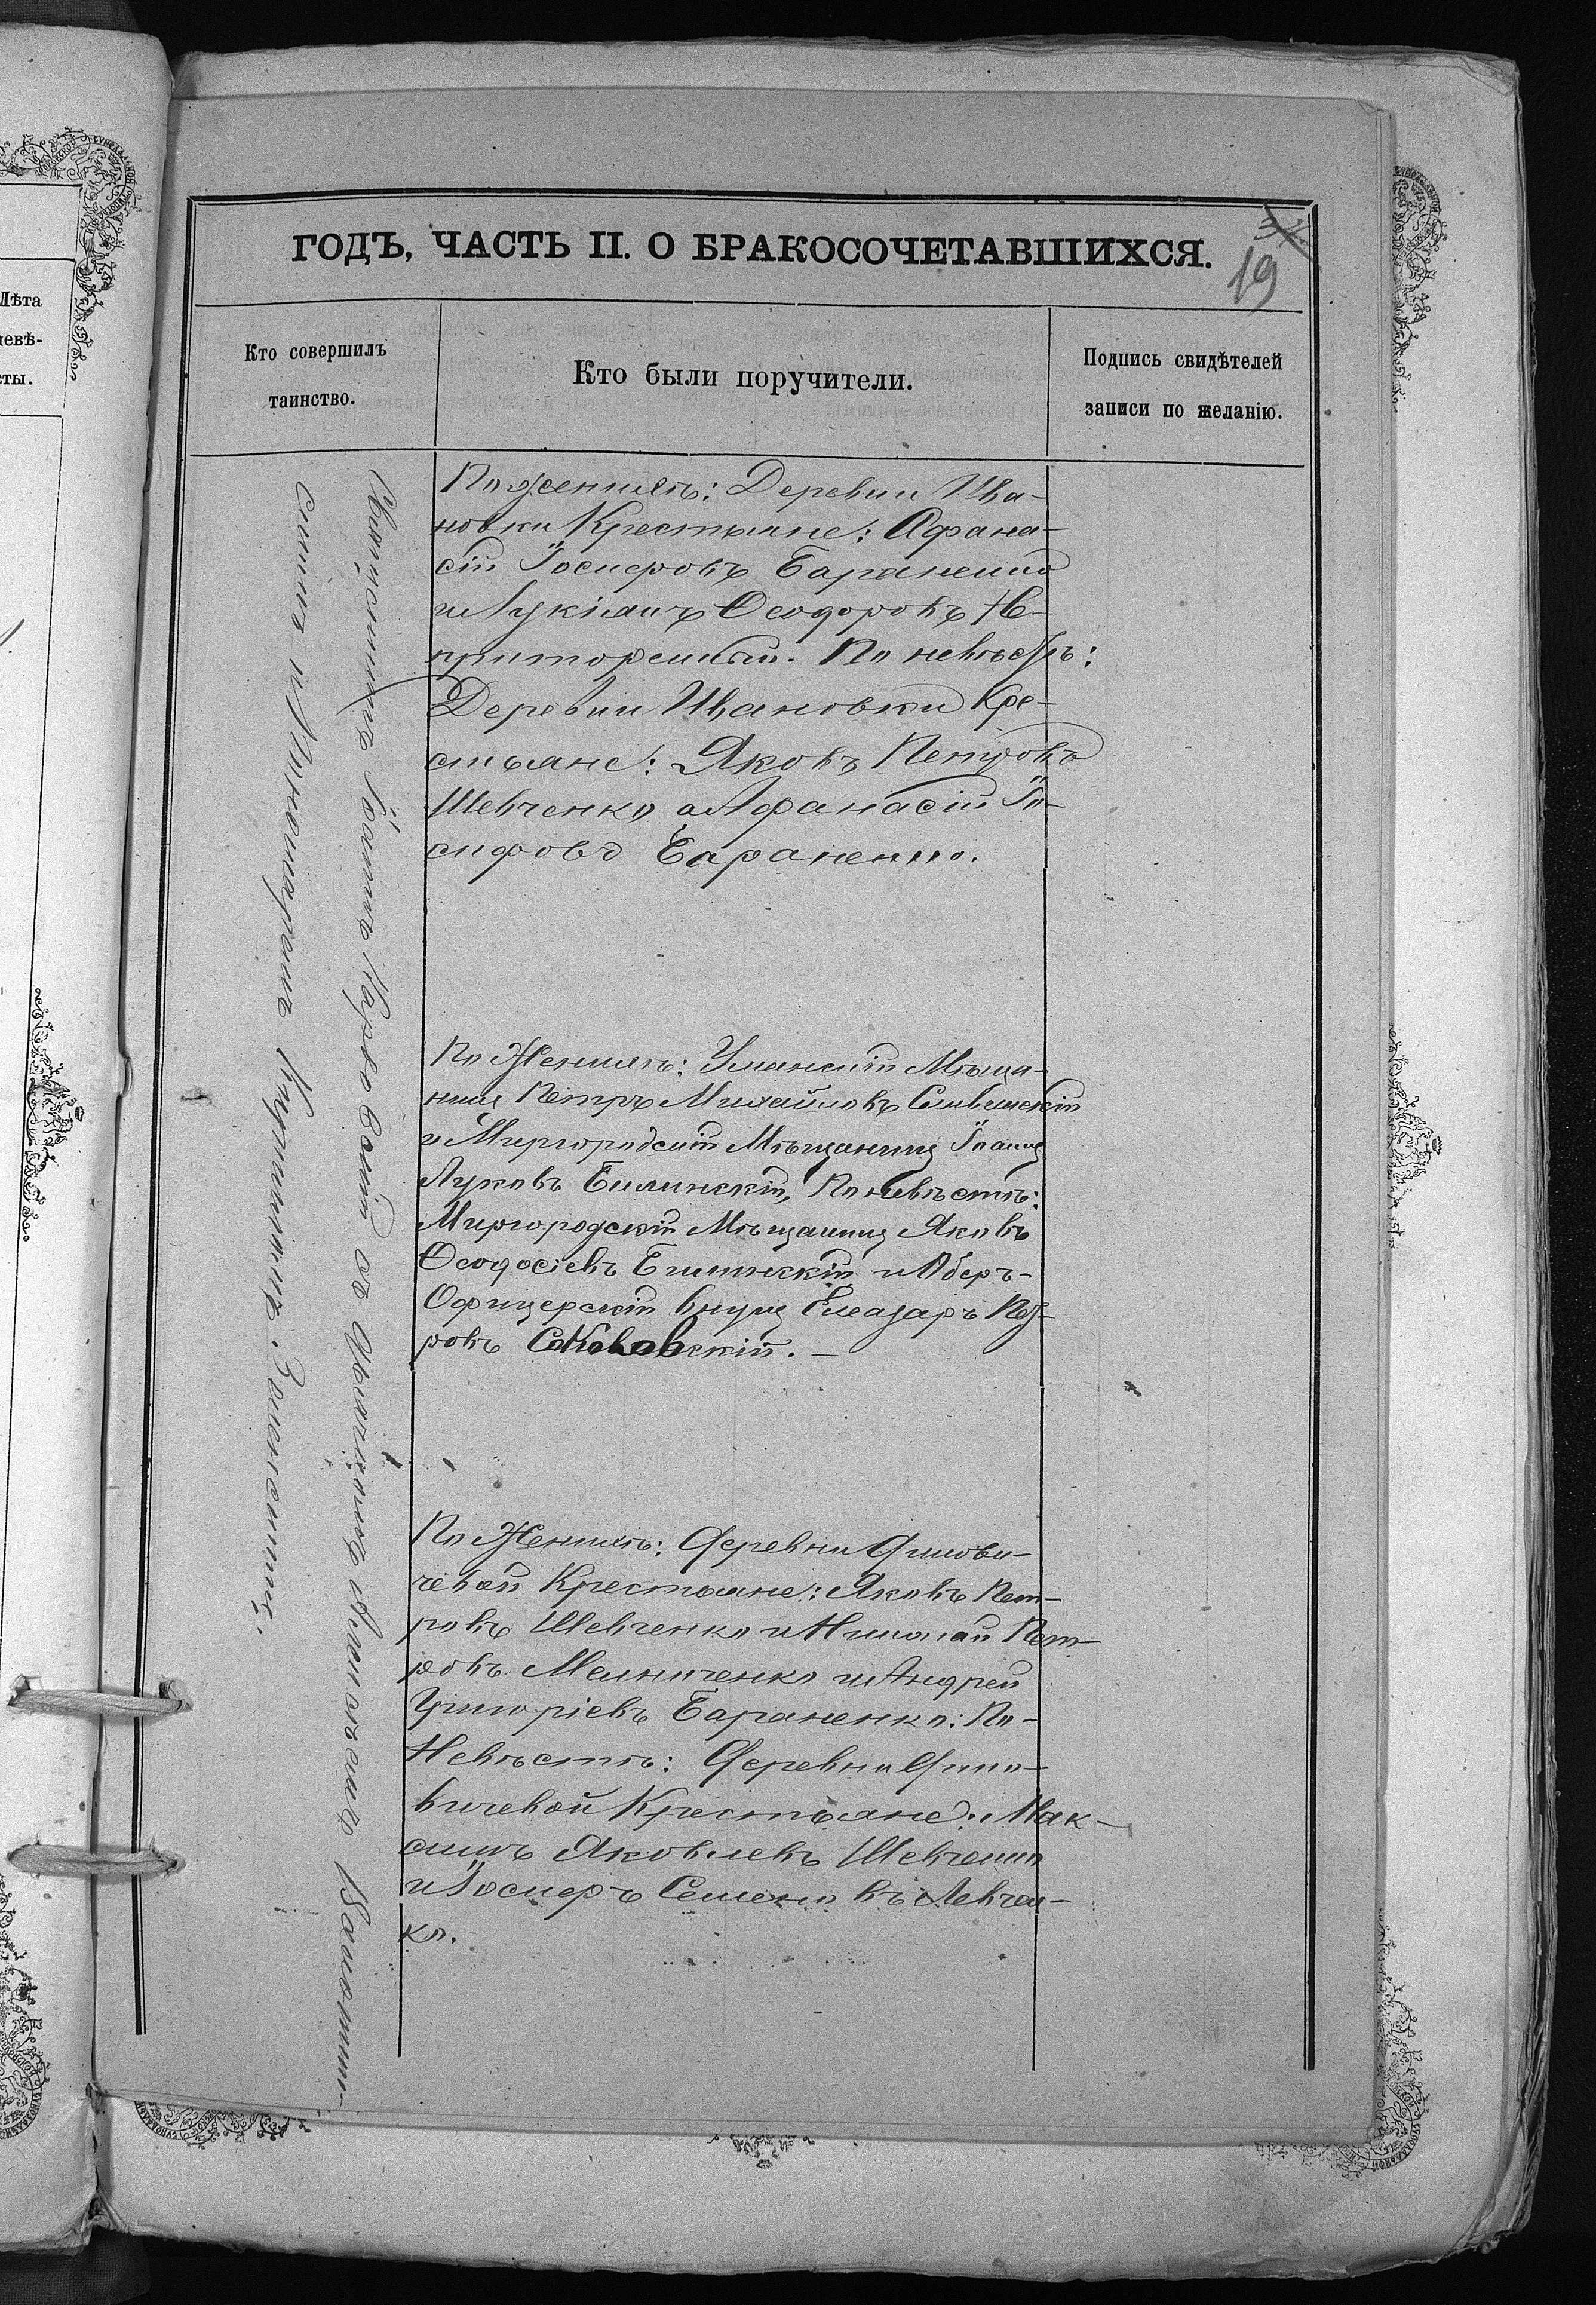 Лѣта
невѣ-
сты.
ГОДЪ, ЧАСТЬ II. О БРАКОСОЧЕТАВШИХСЯ.
19
Кто совершилъ
таинство.
Кто были поручители.
Подпись свидѣтелей
записи по желанію.
Священникъ Іоаннъ съ Псаломщикомъ
и Пономаремъ
По женихѣ: Деревни Ива-
новки Крестьяне: Афана-
сій Іосифовъ Бараненко
и Лукіанъ Ѳеодоровъ Не-
приторенный. По невѣстѣ:
Деревни Ивановки Кре-
стьяне: Яковъ Петровъ
Шевченко и Афанасій Іо-
сифовъ Бараненко.
По Женихѣ: Уманскій Мѣща-
нинъ Петръ Михайловъ
и Миргородскій Мѣщанинъ Іоаннъ
Луковъ Билинскій, По невѣстѣ:
Миргородскій Мѣщанинъ Яковъ
Ѳеодосіевъ Билинскій и Оберъ-
Офицерскій внукъ Елеазаръ Пет-
ровъ Соколовскій. —
По Женихѣ: Деревни
Крестьяне: Яковъ Пет-
ровъ Шевченко и Николай Пет-
ровъ Мельниченко и Андрей
Григоріевъ Бараненко: По
Невѣстѣ: Деревни
Крестьяне: Мак-
симъ Яковлевъ Шевченко
и Іосифъ Семеновъ Левчен-
ко.